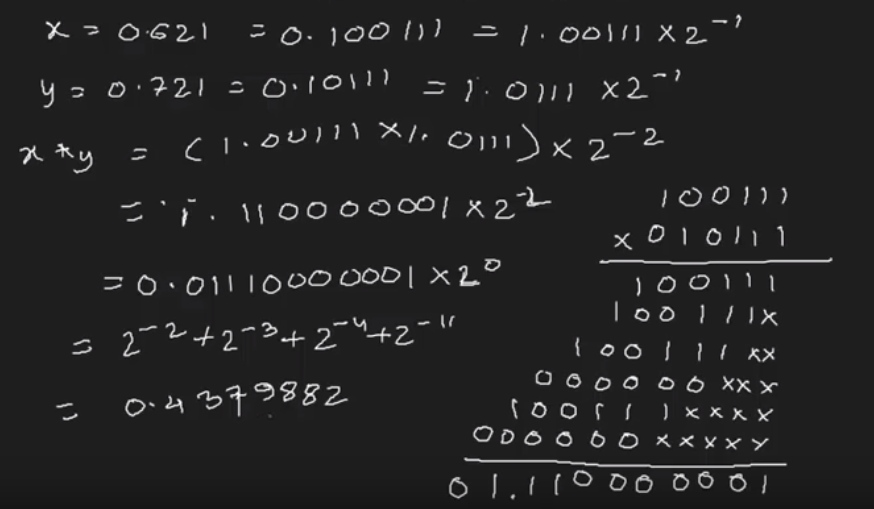 x = 0.621 = 0.100111 = 1.00111 x 2^-1
y = 0.721 = 0.10111 = 1.0111 x 2^-1
x * y = (1.00111 x 1.0111) x 2^-2
= 1.110000001 x 2^-2
= 0.01110000001 x 2^0
= 2^-2 + 2^-3 + 2^-4 + 2^-11
= 0.4379882
100111
x 010111
100111
100111x
100111xx
000000xxx
100111xxxx
000000xxxxx
01.110000001